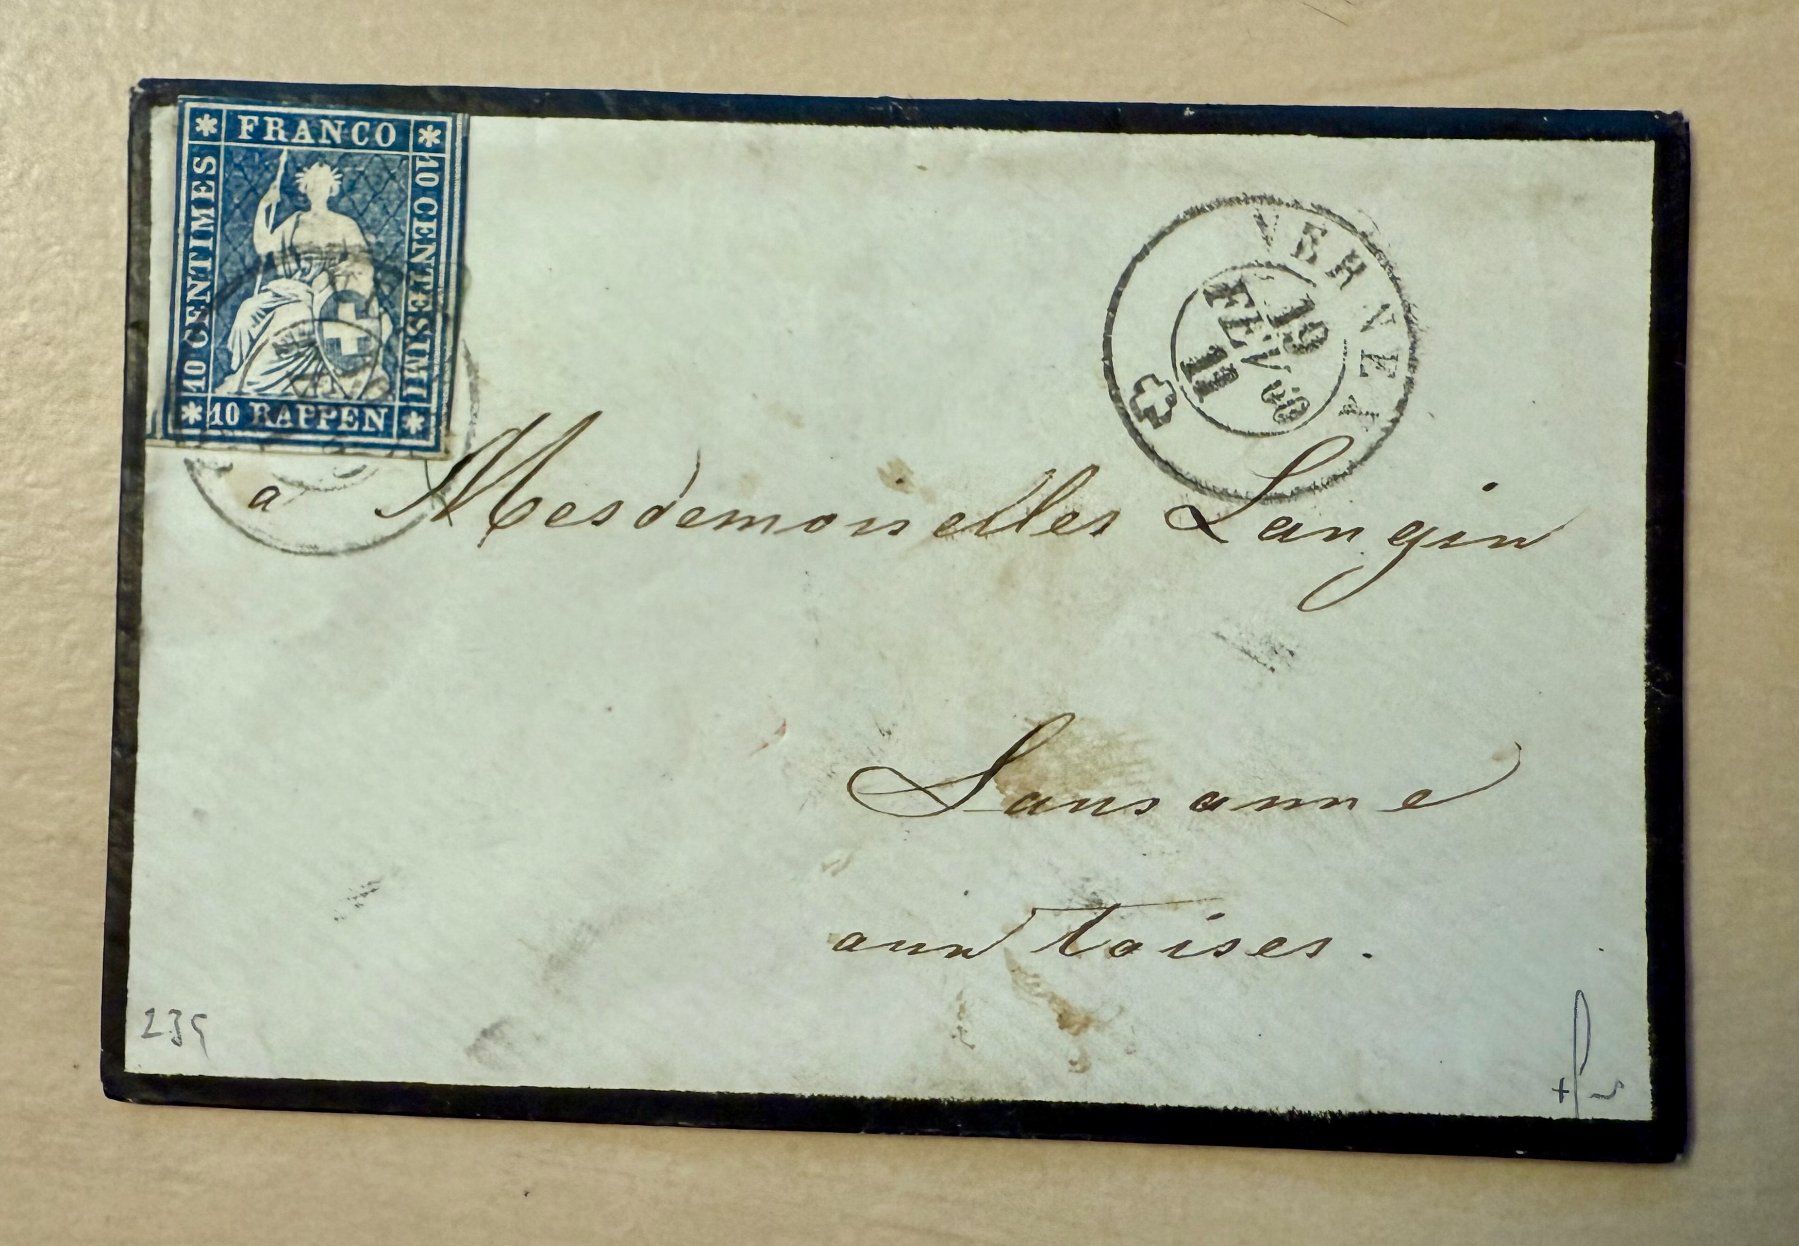 FRANCO
10 CENTIMES
10 CENTESIMI
10 RAPPEN
VERNEX
19
FEV
à Mesdemoiselles Langin
Lausanne
aux Toises.